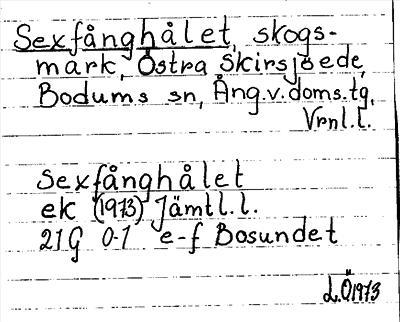 Sexfånghålet, skogs-
mark, Östra Skirsjöede,
Bodums sn, Ång.v.doms.tg,
Vrnl.l.
Sexfånghålet
ek (1973) Jämtl.l.
21G 0-1 e-f Bosundet
L.Ö 1973